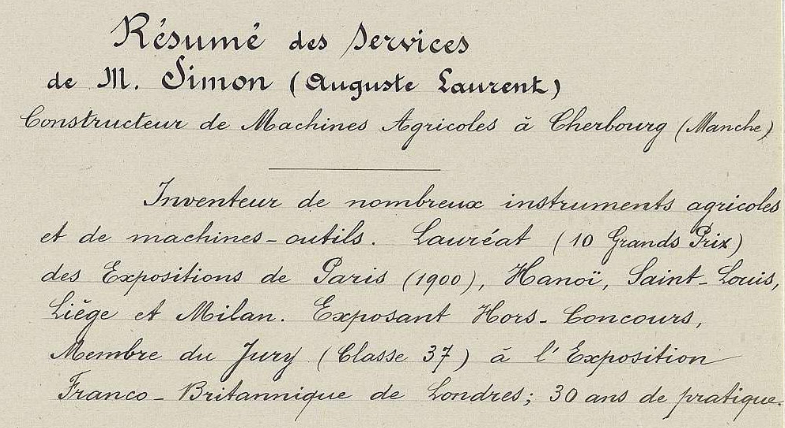 Résumé des Services
de M. Simon (Auguste Laurent)
Constructeur de Machines Agricoles à Cherbourg (Manche)
Inventeur de nombreux instruments agricoles
et de machines-outils. Lauréat (10 Grands Prix)
des Expositions de Paris (1900), Hanoï, Saint-Louis,
Liège et Milan. Exposant Hors-Concours,
Membre du Jury (Classe 37) à l'Exposition
Franco-Britannique de Londres; 30 ans de pratique.